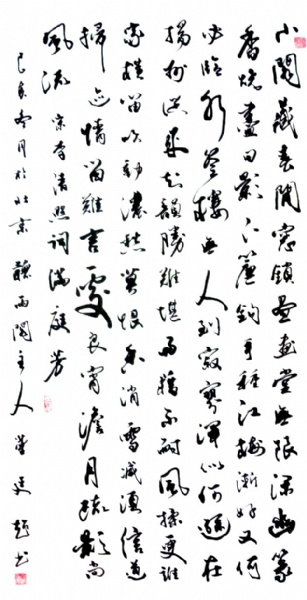 小閣藏春閒窗鎖晝畫堂無限深幽篆
香燒盡日影下簾鉤手種江梅漸好又何
必臨水登樓無人到寂寥渾似何遜在
揚州從來知韻勝難堪雨藉不耐風揉更誰
家橫笛吹動濃愁莫恨香消雪減須信道
掃迹情留難言處良宵澹月疏影尚
風流 宋李清照詞滿庭芳
冬月於北京 聽雨閣主人